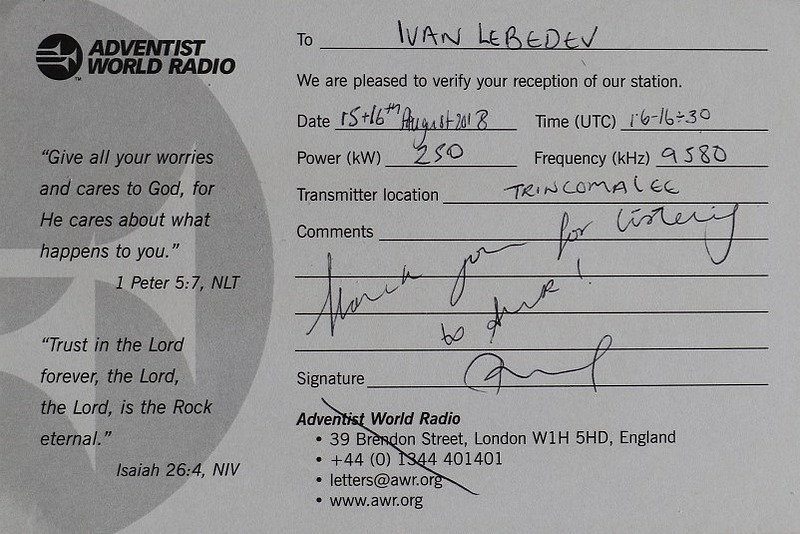 ADVENTIST
WORLD RADIO
TM
"Give all your worries
and cares to God, for
He cares about what
happens to you."
1 Peter 5:7, NLT
"Trust in the Lord
forever, the Lord,
the Lord, is the Rock
eternal."
Isaiah 26:4, NIV
To IVAN LEBEDEV
We are pleased to verify your reception of our station.
Date 15+16th August 2018 Time (UTC) 16-16:30
Power (kW) 250 Frequency (kHz) 9580
Transmitter location TRINCOMALEE
Comments
Thank you for listening
to AWR!
Signature
Adventist World Radio
• 39 Brendon Street, London W1H 5HD, England
• +44 (0) 1344 401401
• letters@awr.org
• www.awr.org